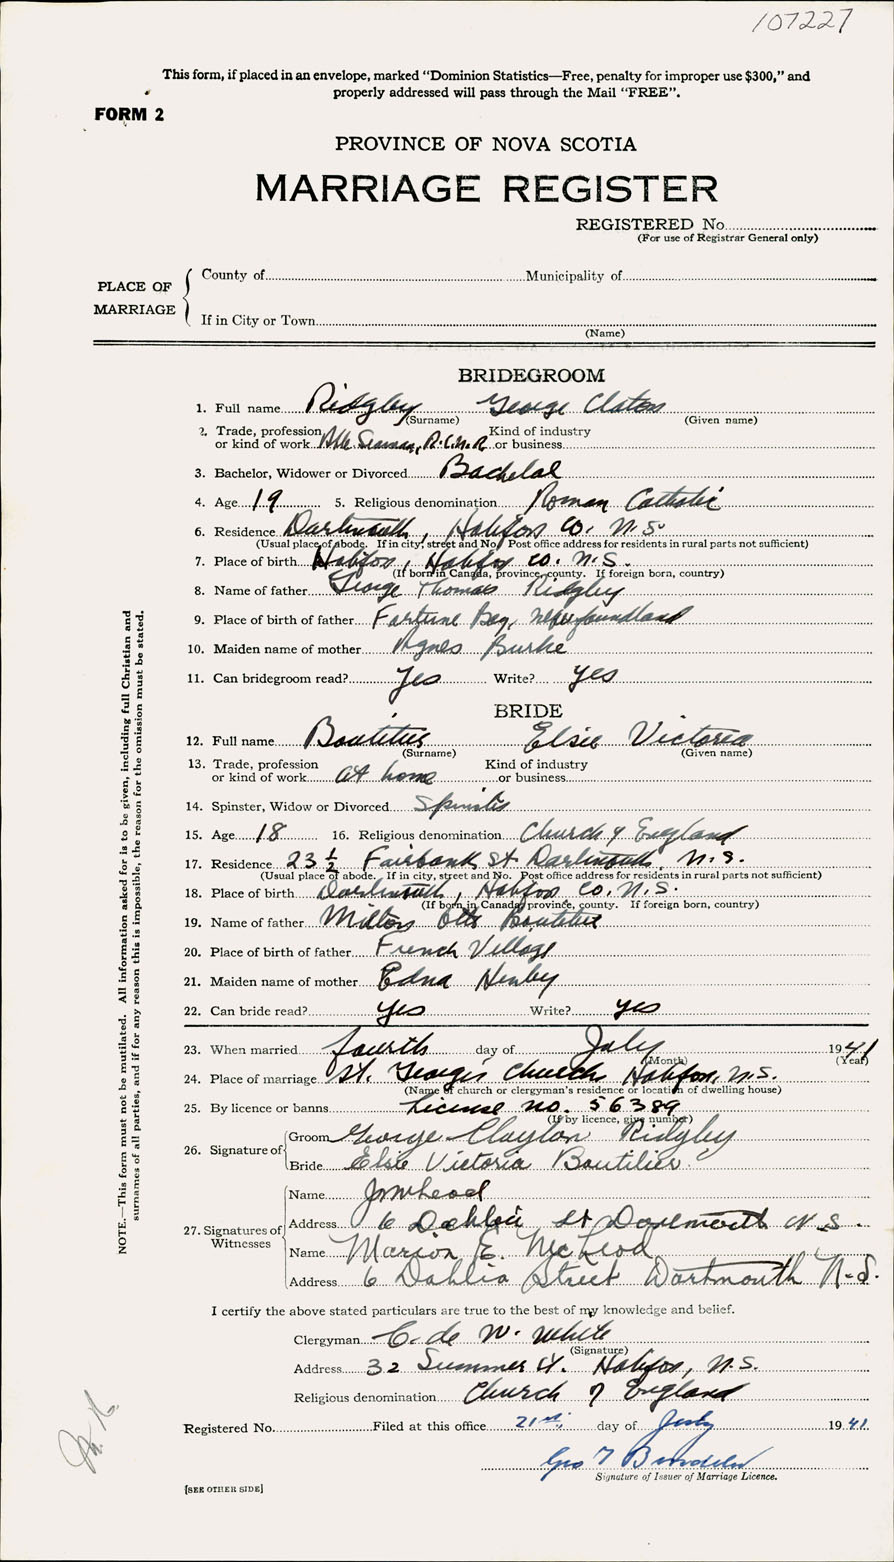 107227
This form, if placed in an envelope, marked "Dominion Statistics—Free, penalty for improper use $300," and
properly addressed will pass through the Mail "FREE".
FORM 2
PROVINCE OF NOVA SCOTIA
MARRIAGE REGISTER
REGISTERED No.
(For use of Registrar General only)
PLACE OF MARRIAGE
County of Municipality of
If in City or Town
(Name)
BRIDEGROOM
1. Full name Ridgley George Claton
(Surname) (Given name)
2. Trade, profession Kind of industry
or kind of work Able Seaman, R.C.N.R. or business
3. Bachelor, Widower or Divorced Bachelor
4. Age 19 5. Religious denomination Roman Catholic
6. Residence Dartmouth, Halifax Co. N.S.
(Usual place of abode. If in city, street and No. Post office address for residents in rural parts not sufficient)
7. Place of birth Halifax, Halifax Co. N.S.
(If born in Canada, province, county. If foreign born, country)
8. Name of father George Thomas Ridgley
9. Place of birth of father Fortune Bay, Newfoundland
10. Maiden name of mother Agnes Burke
11. Can bridegroom read? Yes Write? Yes
BRIDE
12. Full name Boutilier Elsie Victoria
(Surname) (Given name)
13. Trade, profession Kind of industry
or kind of work at home or business
14. Spinster, Widow or Divorced Spinster
15. Age 18 16. Religious denomination Church of England
17. Residence 23 ½ Fairbank St Dartmouth, N.S.
(Usual place of abode. If in city, street and No. Post office address for residents in rural parts not sufficient)
18. Place of birth Dartmouth, Halifax Co. N.S.
(If born in Canada, province, county. If foreign born, country)
19. Name of father Milton Otto Boutilier
20. Place of birth of father French Village
21. Maiden name of mother Edna Henley
22. Can bride read? Yes Write? Yes
23. When married fourth day of July 1941
(Month) (Year)
24. Place of marriage St. George's Church, Halifax, N.S.
(Name of church or clergyman's residence or location of dwelling house)
25. By licence or banns License no. 56389
(If by licence, give number)
26. Signature of Groom George Clayton Ridgley
Bride Elsie Victoria Boutilier
27. Signatures of Witnesses
Name
Address 6 Dahlia St Dartmouth N.S.
Name Marion E. McLeod
Address 6 Dahlia Street Dartmouth N.S.
I certify the above stated particulars are true to the best of my knowledge and belief.
Clergyman C. de W. White
(Signature)
Address 32 Summer St. Halifax, N.S.
Religious denomination Church of England
Registered No. Filed at this office 21st day of July 1941
Geo T
Signature of Issuer of Marriage Licence.
[SEE OTHER SIDE]
NOTE.—This form must not be mutilated. All information asked for is to be given, including full Christian and
surnames of all parties, and if for any reason this is impossible, the reason for the omission must be stated.